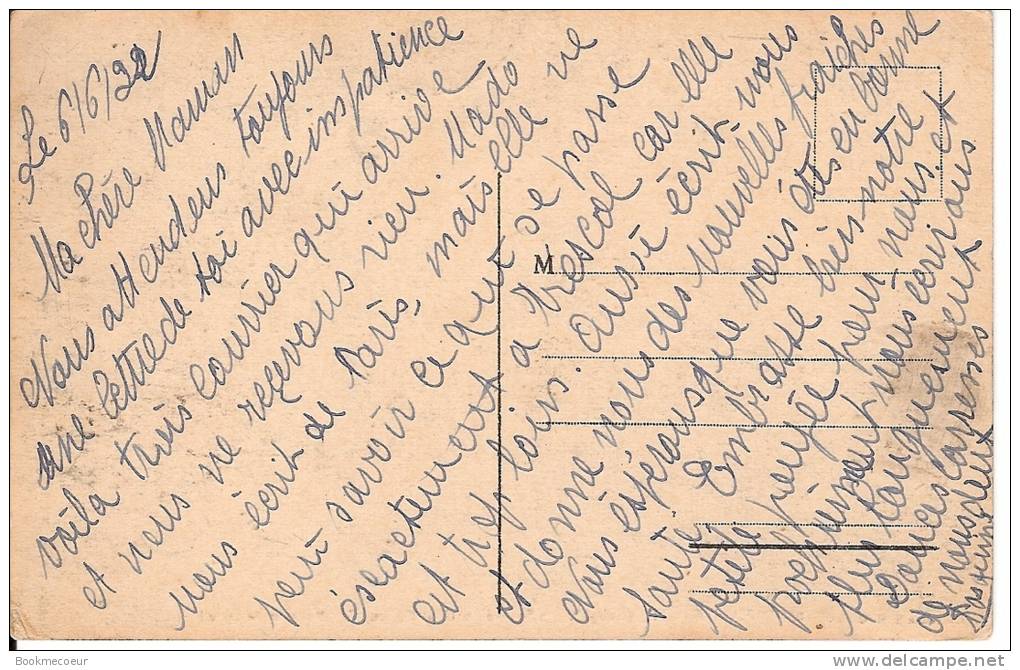 Le 6/6/32
Ma chère Maman
Nous attendons toujours
une lettre de toi avec inspatience
voila trois courrier qui arrive
et nous ne reçevons rien. Mado
nous écrit de Paris, mais elle ne
peut savoir ce qui se passe
éxactement a Trescol car elle
est trop loins. Aussi écrit nous
et donne nous des nouvelles fraiches
Nous éspérons que vous êtes en bonne
santé. Embrasse biens notre
petite poupée pour nous, et
prochainement nous écrirons
plus longuement
Douces caresses
de nous deux
M
Bookmecoeur
delcampe.net